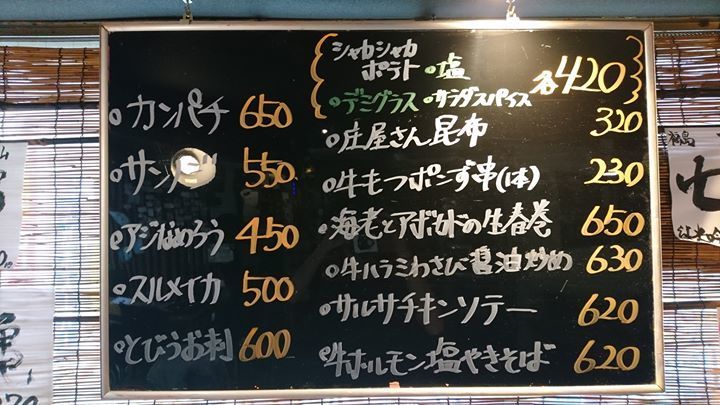 カンパチ 650
サン 550
アジなめろう 450
スルメイカ 500
とびうお刺 600
シャカシャカ
ポテト 塩
デミグラス サラダスパイス
各420
庄屋さん昆布 320
牛もつポンず串(1本) 230
海老とアボカドの生春巻 650
牛ハラミわさび醤油炒め 630
サルサチキンソテー 620
牛ホルモン塩やきそば 620
福島
七